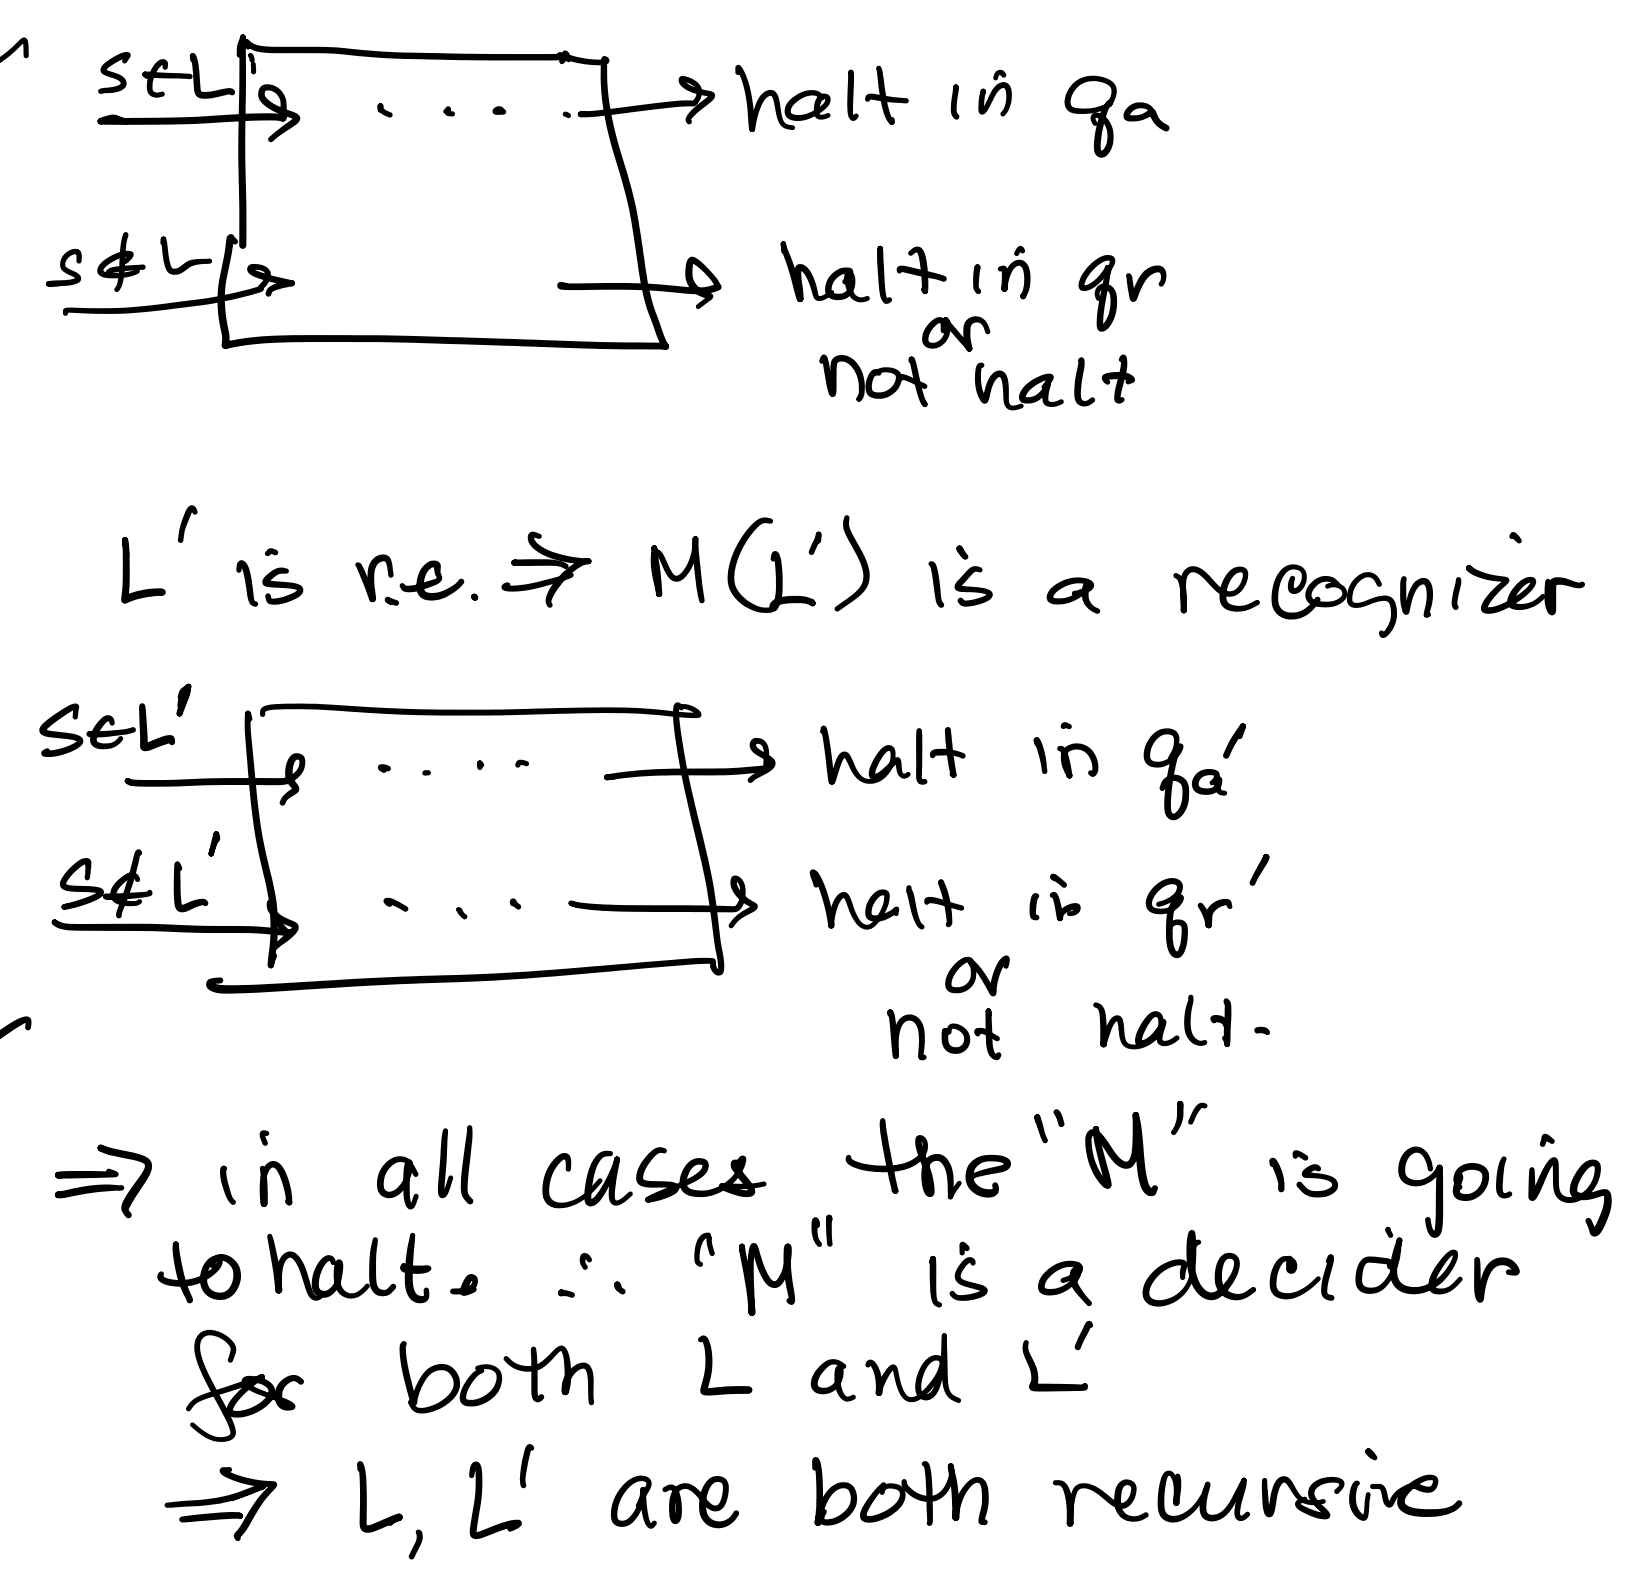 S∈L halt in qa
S∉L halt in qr
or
not halt
L' is r.e. ⇒ M(L') is a recognizer
S∈L' halt in qa'
S∉L' halt in qr'
or
not halt.
⇒ in all cases the "M" is going
to halt. ∴ "M" is a decider
for both L and L'
⇒ L, L' are both recursive